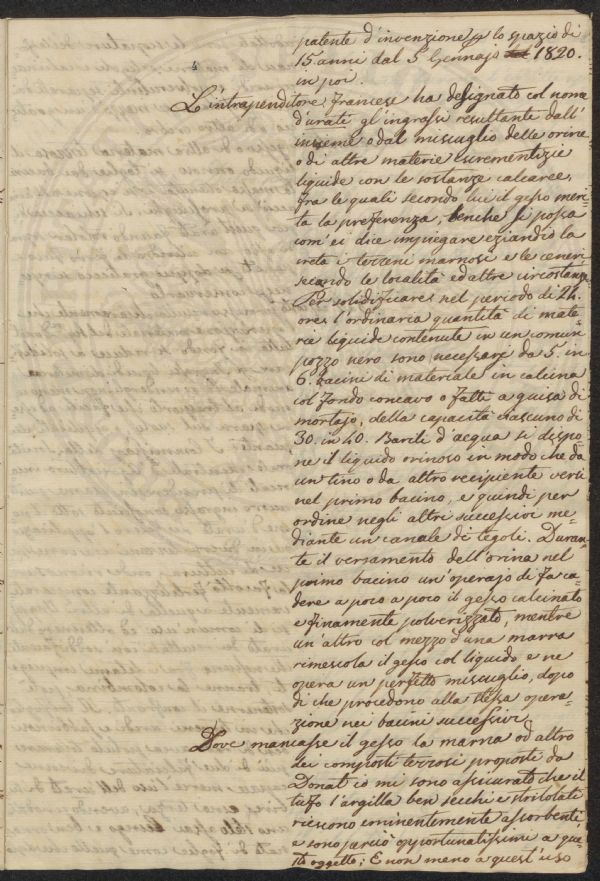 patente d'invenzione p lo spazio di
15. anni dal 5 Gennajo 1820.
in poi.
L'intraprenditore francese ha designato col nome
d'urate gl'ingrassi resultante dall'
insieme o dal miscuglio delle orine
o di altre materie escrementizie
liquide con le sostanze calcaree,
fra le quali secondo lui il gesso meri
ta la preferenza, benche si possa
com' ei dice impiegare eziandio la
creta i terreni marnosi e le ceneri
secondo le località ed altre circostanze
Per solidificare nel periodo di 24.
ore l'ordinaria quantità di mate
rie liquide contenute in un comun
pozzo nero sono necessarj da 5. in
6. bacini di materiale in calcina
col fondo concavo o fatti a guisa di
mortajo, della capacità ciascuno di
30. in 40. Barili d'acqua si dispo
ne il liquido orinoso in modo che da
un tino o da altro recipiente versi
nel primo bacino, e quindi per
ordine negli altri successivi me=
diante un canale di tegoli. Duran=
te il versamento dell'orina nel
primo bacino un operajo fa ca=
dere a poco a poco il gesso calcinato
e finamente polverizzato, mentre
un'altro col mezzo d'una marra
rimescola il gesso col liquido e ne
opera un perfetto miscuglio, dopo
di che procedono alla stessa opera=
zione nei bacini successivi.
Dove mancasse il gesso la marna od altro
dei composti terrosi proposti da
Donat io mi sono assicurato che il
tufo l'argilla ben secchi e stritolati
riescono eminentemente assorbenti
e sono perciò opportunatissimi a que=
sto oggetto; E non meno a quest'uso